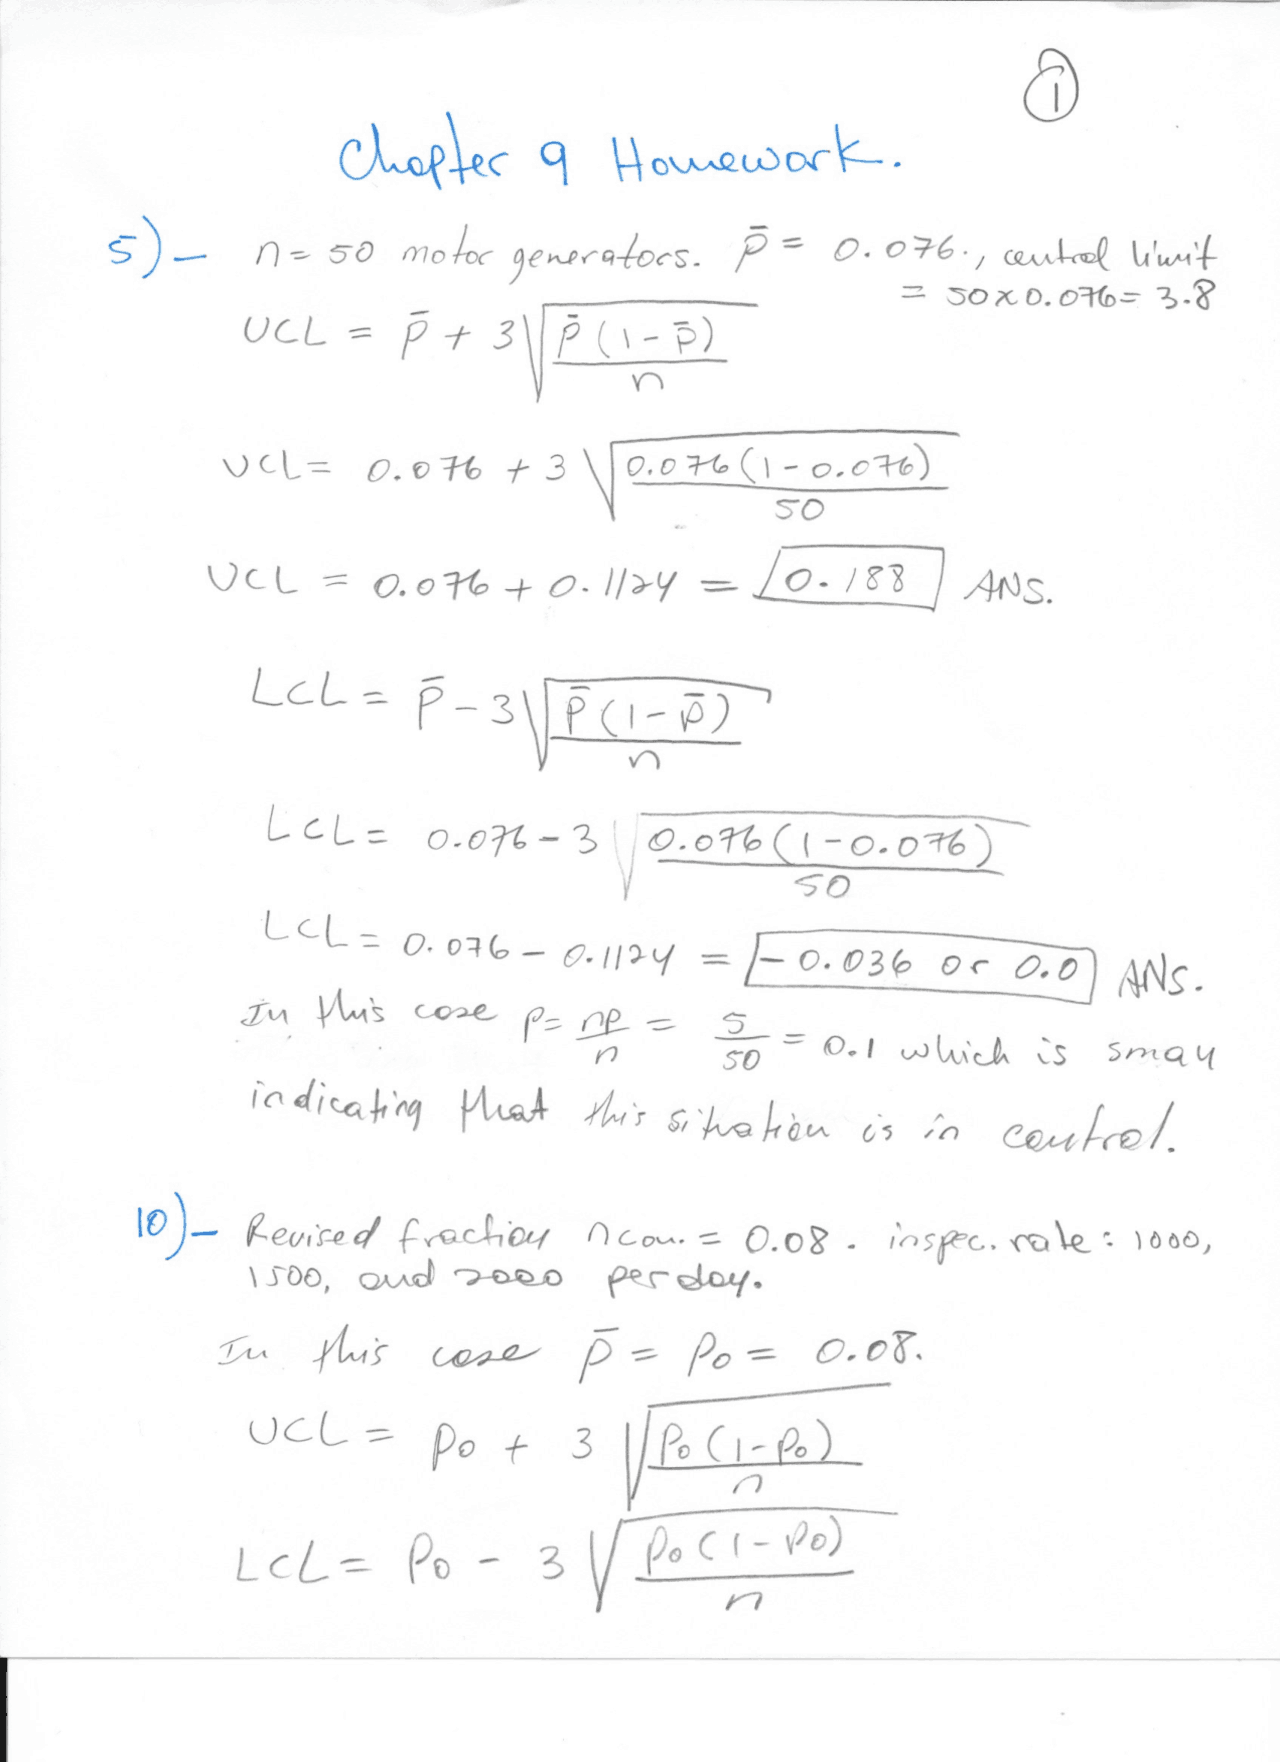 1
Chapter 9 Homework.
5)- n = 50 motor generators. p̄ = 0.076., central limit
= 50x0.076 = 3.8
UCL = p̄ + 3√(p̄(1-p̄)/n)
UCL = 0.076 + 3√(0.076(1-0.076)/50)
UCL = 0.076 + 0.1124 = 0.188 ANS.
LCL = p̄ - 3√(p̄(1-p̄)/n)
LCL = 0.076 - 3√(0.076(1-0.076)/50)
LCL = 0.076 - 0.1124 = -0.036 or 0.0 ANS.
In this case p = np/n = 5/50 = 0.1 which is small
indicating that this situation is in control.
10)- Revised fraction ncon. = 0.08. inspec. rate: 1000,
1500, and 2000 per day.
In this case p̄ = Po = 0.08.
UCL = Po + 3√(Po(1-Po)/n)
LCL = Po - 3√(Po(1-Po)/n)